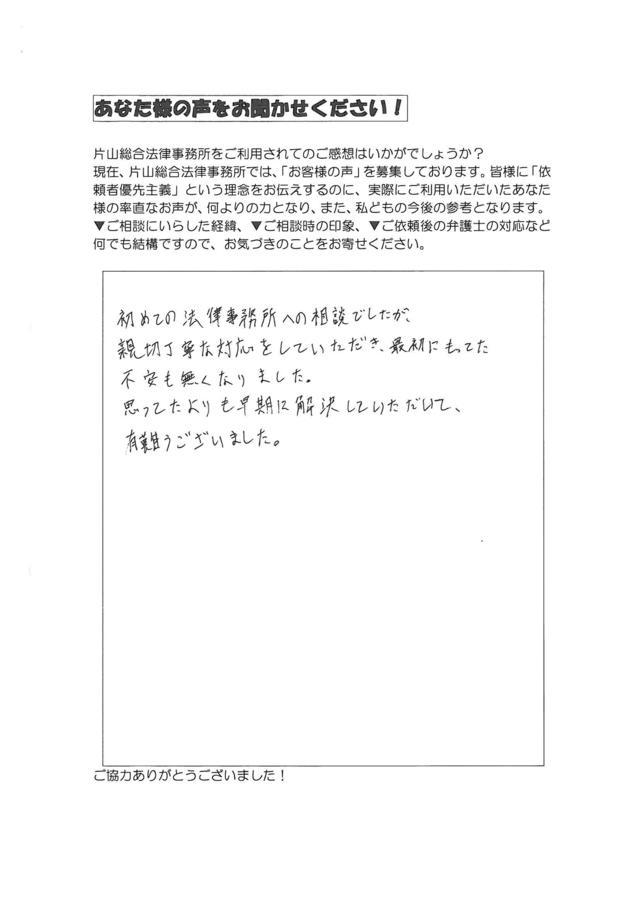 あなた様の声をお聞かせください！
片山総合法律事務所をご利用されてのご感想はいかがでしょうか？
現在、片山総合法律事務所では、「お客様の声」を募集しております。皆様に「依
頼者優先主義」という理念をお伝えするのに、実際にご利用いただいたあなた
様の率直なお声が、何よりの力となり、また、私どもの今後の参考となります。
▼ご相談にいらした経緯、▼ご相談時の印象、▼ご依頼後の弁護士の対応など
何でも結構ですので、お気づきのことをお寄せください。
初めての法律事務所への相談でしたが、
親切丁寧な対応をしていただき、最初にもってた
不安も無くなりました。
思ってたよりも早期に解決していただいて、
有難うございました。
ご協力ありがとうございました！